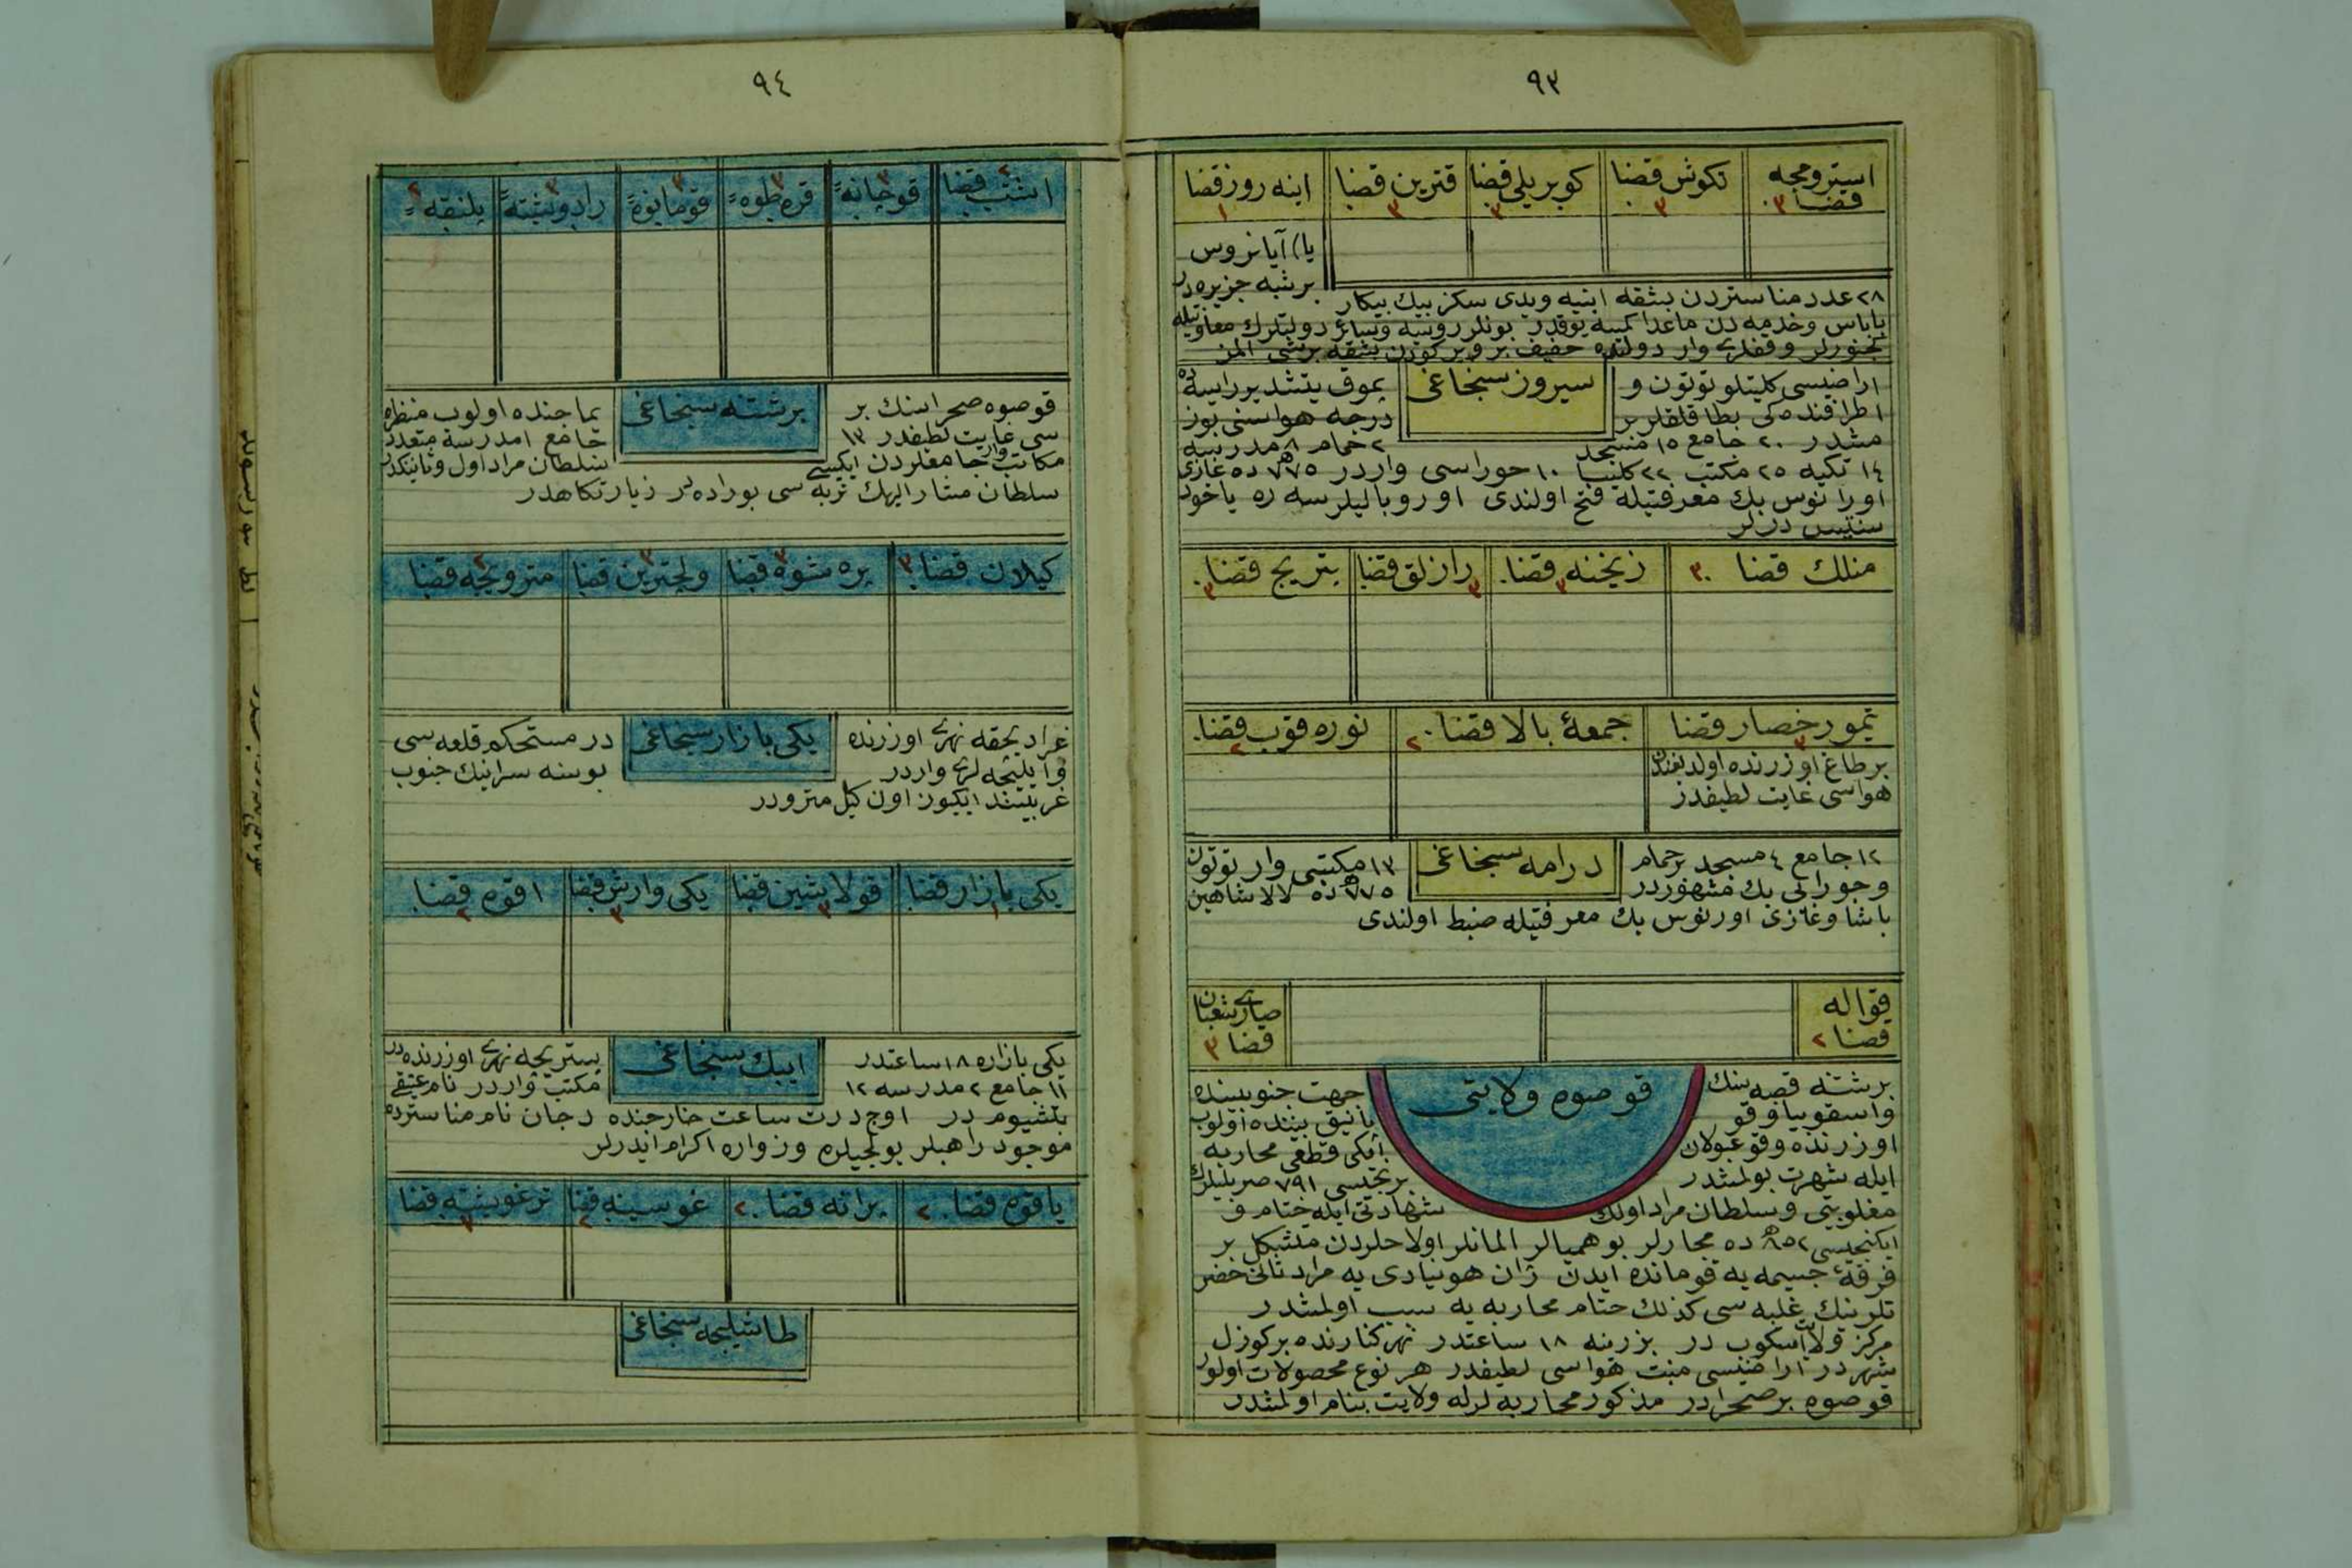 ٩٣
استرومجه قضا ٣
تكوش قضا ٣
كوپريلى قضا ٣
قترين قضا ٣
اينه روز قضا ١
يا) آيانروس
برشبه جزيره در
٢٨ عدد مناستردن بشقه ابنيه ويدى سكز بيك بيكار
پاپاس وخدمه دن ماعدا كمسه يوقدر بونلر روسيه وسائر دولتلرك معاونتيله
كچنورلر وقفلرى وار دولته خفيف بر ويركودن بشقه برشى المز
سيروز سنجاغى
اراضيسى كليتلو توتون و
پموق يتشدير راسيه ده
اطرافنده كى بطاقلقلر بر
درجه هواسنى بوز
مشدر ٢٠ جامع ١٥ مسجد
٢ حمام ٨ مدرسه
١٤ تكيه ٢٥ مكتب ٢٢ كليسا ١٠ حوراسى واردر ٧٧٥ ده غازى
اورانوس بك معرفتيله فتح اولندى اوروپاليلر سه ره ياخود
سنتيس ديرلر
منلك قضا ٣
زيخنه قضا ٣
رازلق قضا ٣
پتريچ قضا ٣
تيمور حصار قضا ٣
جمعهٔ بالا قضا ٢
نوره قوپ قضا ٢
برطاغ اوزرنده اولديغندن
هواسى غايت لطيفدر
درامه سنجاغى
١٢ جامع ٤ مسجد بر حمام
١٣ مكتبى وار توتون
وجورابى پك مشهوردر
٧٧٥ ده لالا شاهين
پاشا وغازى اورنوس بك معرفتيله ضبط اولندى
قواله قضا ٢
صارى شعبان قضا ٣
قوصوه ولايتى
برشتنه قصبه سنك
جهت جنوبيسنده
واسقوبيا وقو
يانيق بيننده اولوب
اوزرنده وقوعبولان
ايكى قطعى محاربه
ايله شهرت بولمشدر
برنجيسى ٧٩١ صربليلرك
مغلوبيتى وسلطان مراد اولك
شهادتى ايله ختام ف
ايكنجيسى ٨٥٢ ده مجارلر بوهميالر المانلر اولاحلردن متشكل بر
فرقهٔ جسيمه يه قوماندە ايدن ژان هونيادى يه مراد ثانى حضر
تلرينك غلبه سى كذلك ختام محاربه يه سبب اولمشدر
مركز ولايت اسكوب در پزرينه ١٨ ساعتدر نهر كنارنده بر كوزل
شهردر اراضيسى منبت هواسى لطيفدر هر نوع محصولات اولور
قوصوه بر صحرادر مذكور محاربه لرله ولايت بنام اولمشدر
٩٤
اشتب قضا ٢
قوچانه ٣
قره طوه ٣
قومانوه ٣
رادويشته ٣
پلنقه ٢
برشتنه سنجاغى
قوصوه صحراسنك بر
يماجنده اولوب منظره
سى غايت لطيفدر ١٣
جامع ١ مدرسه متعدد
مكاتب وار جامعلردن ايكيسى
سلطان مراد اول وثانينكدر
سلطان مشار اليهك تربه سى بوراده در زيارتكاهدر
كيلان قضا ٣
پره شوه قضا ٣
ولچترين قضا ٣
متروبچه قضا ٢
يكى بازار سنجاغى
غراديحقه نهرى اوزرنده
در مستحكم قلعه سى
وايليجه لرى واردر
بوسنه سرانيك جنوب
غربيسنده ايكيوز اون كيلومترودر
يكى بازار قضا ١
قولاشين قضا ٣
يكى وارش قضا ٣
اقوه قضا ٢
ايپك سنجاغى
يكى بازاره ١٨ ساعتدر
پستريچه نهرى اوزرنده در
١١ جامع ٢ مدرسه ١٢
مكتب واردر نام عتيقى
پتشيوم در اوچ درت ساعت خارجنده دچان نام مناسترده
موجود راهبلر يولجيلره وزواره اكرام ايدرلر
ياقوه قضا ٢
برانه قضا ٢
غوسينه قضا ٢
ترغويشته قضا ٣
طاشليجه سنجاغى